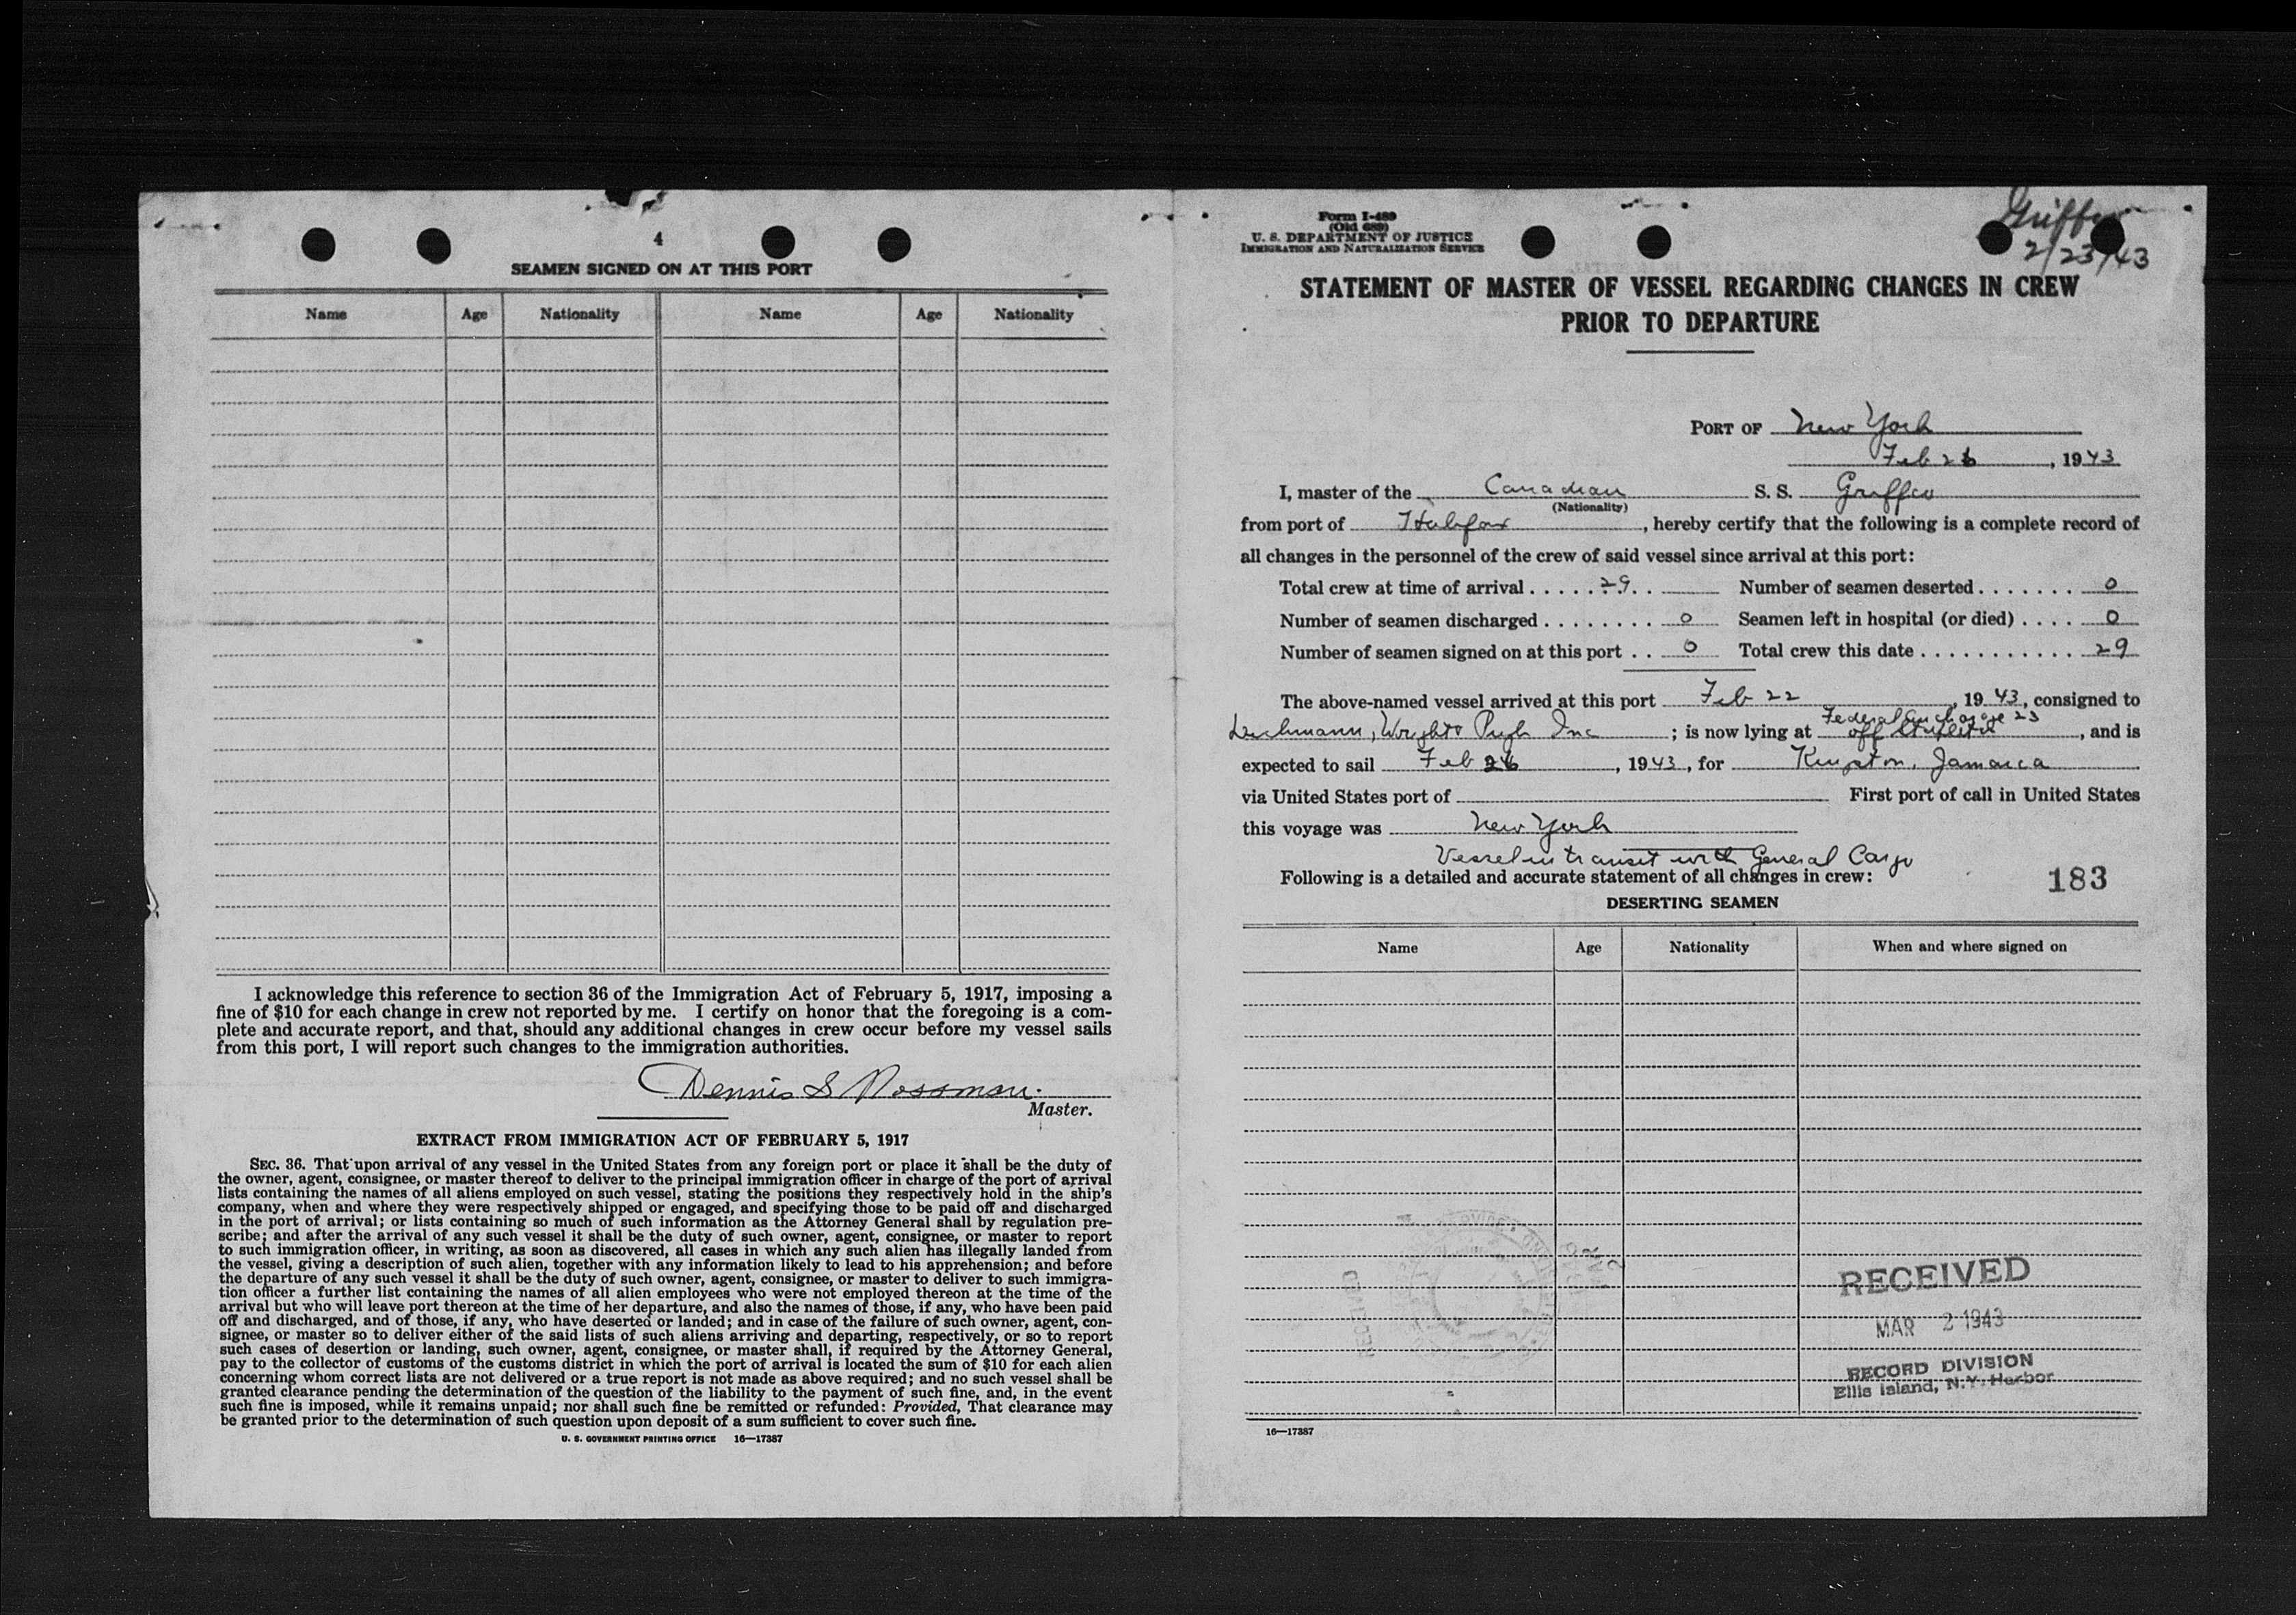 4
SEAMEN SIGNED ON AT THIS PORT
Name Age Nationality Name Age Nationality
I acknowledge this reference to section 36 of the Immigration Act of February 5, 1917, imposing a
fine of $10 for each change in crew not reported by me. I certify on honor that the foregoing is a com-
plete and accurate report, and that, should any additional changes in crew occur before my vessel sails
from this port, I will report such changes to the immigration authorities.
Dennis S Rossman.
Master.
EXTRACT FROM IMMIGRATION ACT OF FEBRUARY 5, 1917
SEC. 36. That upon arrival of any vessel in the United States from any foreign port or place it shall be the duty of
the owner, agent, consignee, or master thereof to deliver to the principal immigration officer in charge of the port of arrival
lists containing the names of all aliens employed on such vessel, stating the positions they respectively hold in the ship's
company, when and where they were respectively shipped or engaged, and specifying those to be paid off and discharged
in the port of arrival; or lists containing so much of such information as the Attorney General shall by regulation pre-
scribe; and after the arrival of any such vessel it shall be the duty of such owner, agent, consignee, or master to report
to such immigration officer, in writing, as soon as discovered, all cases in which any such alien has illegally landed from
the vessel, giving a description of such alien, together with any information likely to lead to his apprehension; and before
the departure of any such vessel it shall be the duty of such owner, agent, consignee, or master to deliver to such immigra-
tion officer a further list containing the names of all alien employees who were not employed thereon at the time of the
arrival but who will leave port thereon at the time of her departure, and also the names of those, if any, who have been paid
off and discharged, and of those, if any, who have deserted or landed; and in case of the failure of such owner, agent, con-
signee, or master so to deliver either of the said lists of such aliens arriving and departing, respectively, or so to report
such cases of desertion or landing, such owner, agent, consignee, or master shall, if required by the Attorney General,
pay to the collector of customs of the customs district in which the port of arrival is located the sum of $10 for each alien
concerning whom correct lists are not delivered or a true report is not made as above required; and no such vessel shall be
granted clearance pending the determination of the question of the liability to the payment of such fine, and, in the event
such fine is imposed, while it remains unpaid; nor shall such fine be remitted or refunded: Provided, That clearance may
be granted prior to the determination of such question upon deposit of a sum sufficient to cover such fine.
U. S. GOVERNMENT PRINTING OFFICE 16—17387
Form I-489
(Old 689)
U. S. DEPARTMENT OF JUSTICE
IMMIGRATION AND NATURALIZATION SERVICE
Griffco
2/23/43
STATEMENT OF MASTER OF VESSEL REGARDING CHANGES IN CREW
PRIOR TO DEPARTURE
PORT OF New York
Feb 26, 1943
I, master of the Canadian S. S. Griffco
(Nationality)
from port of Halifax, hereby certify that the following is a complete record of
all changes in the personnel of the crew of said vessel since arrival at this port:
Total crew at time of arrival . . . . . 29. . Number of seamen deserted . . . . . . . 0
Number of seamen discharged . . . . . . . . 0 Seamen left in hospital (or died) . . . . 0
Number of seamen signed on at this port . . 0 Total crew this date . . . . . . . . . . . . 29
The above-named vessel arrived at this port Feb 22, 1943, consigned to
Wright & Pugh Inc ; is now lying at Federal Anchorage 23
off, and is
expected to sail Feb 26, 1943, for Kingston, Jamaica
via United States port of First port of call in United States
this voyage was New York
Vessel in transit with General Cargo
Following is a detailed and accurate statement of all changes in crew:
183
DESERTING SEAMEN
Name Age Nationality When and where signed on
RECEIVED
MAR 2 1943
RECORD DIVISION
Ellis Island, N.Y. Harbor
16—17387